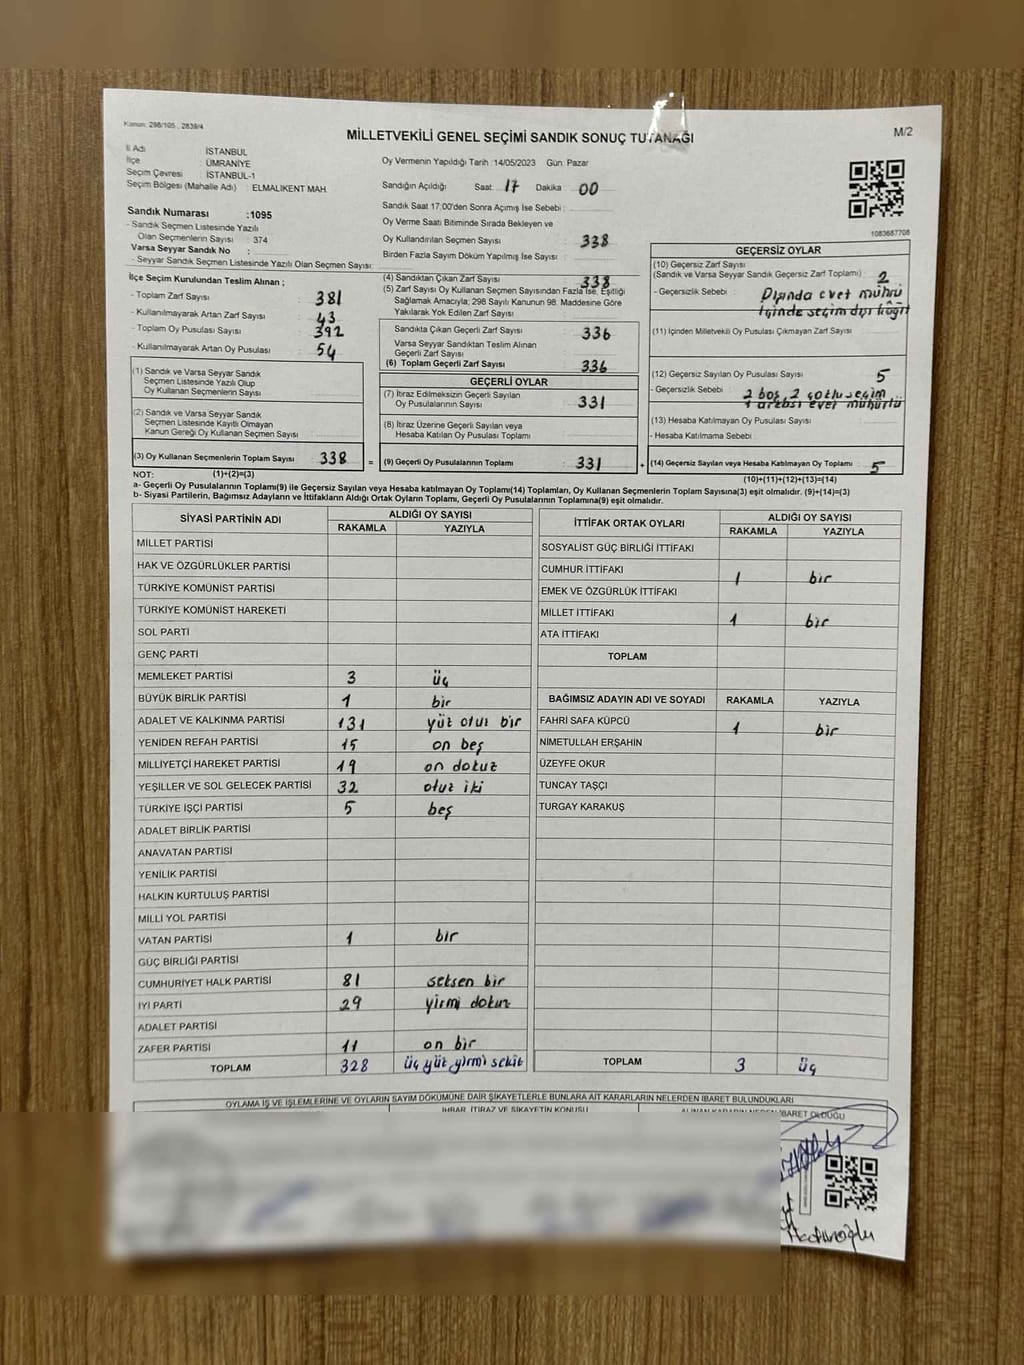 Kanun: 298/105 , 2839/4
MİLLETVEKİLİ GENEL SEÇİMİ SANDIK SONUÇ TUTANAĞI
M/2
İl Adı : İSTANBUL
İlçe : ÜMRANİYE
Seçim Çevresi : İSTANBUL-1
Seçim Bölgesi (Mahalle Adı) : ELMALIKENT MAH.
Oy Vermenin Yapıldığı Tarih :14/05/2023 Gün: Pazar
Sandığın Açıldığı Saat 17 Dakika 00
Sandık Saat 17:00'den Sonra Açılmış İse Sebebi :
Sandık Numarası :1095
- Sandık Seçmen Listesinde Yazılı
Olan Seçmenlerin Sayısı : 374
Varsa Seyyar Sandık No :
- Seyyar Sandık Seçmen Listesinde Yazılı Olan Seçmen Sayısı:
Oy Verme Saati Bitiminde Sırada Bekleyen ve
Oy Kullandırılan Seçmen Sayısı : 338
Birden Fazla Sayım Döküm Yapılmış İse Sayısı :
1083687708
İlçe Seçim Kurulundan Teslim Alınan ;
- Toplam Zarf Sayısı : 381
- Kullanılmayarak Artan Zarf Sayısı : 43
- Toplam Oy Pusulası Sayısı : 392
- Kullanılmayarak Artan Oy Pusulası : 54
(1) Sandık ve Varsa Seyyar Sandık
Seçmen Listesinde Yazılı Olup
Oy Kullanan Seçmenlerin Sayısı :
(2) Sandık ve Varsa Seyyar Sandık
Seçmen Listesinde Kayıtlı Olmayan
Kanun Gereği Oy Kullanan Seçmen Sayısı :
(3) Oy Kullanan Seçmenlerin Toplam Sayısı 338 =
(4) Sandıktan Çıkan Zarf Sayısı : 338
(5) Zarf Sayısı Oy Kullanan Seçmen Sayısından Fazla İse, Eşitliği
Sağlamak Amacıyla; 298 Sayılı Kanunun 98. Maddesine Göre
Yakılarak Yok Edilen Zarf Sayısı :
Sandıkta Çıkan Geçerli Zarf Sayısı : 336
Varsa Seyyar Sandıktan Teslim Alınan
Geçerli Zarf Sayısı :
(6) Toplam Geçerli Zarf Sayısı : 336
GEÇERLİ OYLAR
(7) İtiraz Edilmeksizin Geçerli Sayılan
Oy Pusulalarının Sayısı : 331
(8) İtiraz Üzerine Geçerli Sayılan veya
Hesaba Katılan Oy Pusulası Toplamı :
(9) Geçerli Oy Pusulalarının Toplamı : 331 +
GEÇERSİZ OYLAR
(10) Geçersiz Zarf Sayısı
(Sandık ve Varsa Seyyar Sandık Geçersiz Zarf Toplamı) : 2
- Geçersizlik Sebebi : Dışında evet mührü
içinde seçim dışı kâğıt
(11) İçinden Milletvekili Oy Pusulası Çıkmayan Zarf Sayısı
(12) Geçersiz Sayılan Oy Pusulası Sayısı : 5
- Geçersizlik Sebebi : 2 boş, 2 çoklu seçim
1 arkası evet mühürlü
(13) Hesaba Katılmayan Oy Pusulası Sayısı :
- Hesaba Katılmama Sebebi :
(14) Geçersiz Sayılan veya Hesaba Katılmayan Oy Toplamı : 5
NOT: (1)+(2)=(3)
(10)+(11)+(12)+(13)=(14)
a- Geçerli Oy Pusulalarının Toplamı(9) ile Geçersiz Sayılan veya Hesaba katılmayan Oy Toplamı(14) Toplamları, Oy Kullanan Seçmenlerin Toplam Sayısına(3) eşit olmalıdır. (9)+(14)=(3)
b- Siyasi Partilerin, Bağımsız Adayların ve İttifakların Aldığı Ortak Oyların Toplamı, Geçerli Oy Pusulalarının Toplamına(9) eşit olmalıdır.
SİYASİ PARTİNİN ADI
ALDIĞI OY SAYISI
RAKAMLA YAZIYLA
MİLLET PARTİSİ
HAK VE ÖZGÜRLÜKLER PARTİSİ
TÜRKİYE KOMÜNİST PARTİSİ
TÜRKİYE KOMÜNİST HAREKETİ
SOL PARTİ
GENÇ PARTİ
MEMLEKET PARTİSİ 3 üç
BÜYÜK BİRLİK PARTİSİ 1 bir
ADALET VE KALKINMA PARTİSİ 131 yüz otuz bir
YENİDEN REFAH PARTİSİ 15 on beş
MİLLİYETÇİ HAREKET PARTİSİ 19 on dokuz
YEŞİLLER VE SOL GELECEK PARTİSİ 32 otuz iki
TÜRKİYE İŞÇİ PARTİSİ 5 beş
ADALET BİRLİK PARTİSİ
ANAVATAN PARTİSİ
YENİLİK PARTİSİ
HALKIN KURTULUŞ PARTİSİ
MİLLİ YOL PARTİSİ
VATAN PARTİSİ 1 bir
GÜÇ BİRLİĞİ PARTİSİ
CUMHURİYET HALK PARTİSİ 81 seksen bir
İYİ PARTİ 29 yirmi dokuz
ADALET PARTİSİ
ZAFER PARTİSİ 11 on bir
TOPLAM 328 üç yüz yirmi sekiz
İTTİFAK ORTAK OYLARI
ALDIĞI OY SAYISI
RAKAMLA YAZIYLA
SOSYALİST GÜÇ BİRLİĞİ İTTİFAKI
CUMHUR İTTİFAKI 1 bir
EMEK VE ÖZGÜRLÜK İTTİFAKI
MİLLET İTTİFAKI 1 bir
ATA İTTİFAKI
TOPLAM
BAĞIMSIZ ADAYIN ADI VE SOYADI RAKAMLA YAZIYLA
FAHRİ SAFA KÜPCÜ 1 bir
NİMETULLAH ERŞAHİN
ÜZEYFE OKUR
TUNCAY TAŞÇI
TURGAY KARAKUŞ
TOPLAM 3 üç
OYLAMA İŞ VE İŞLEMLERİNE VE OYLARIN SAYIM DÖKÜMÜNE DAİR ŞİKAYETLERLE BUNLARA AİT KARARLARIN NELERDEN İBARET BULUNDUKLARI
İHBAR, İTİRAZ VE ŞİKAYETİN KONUSU
ALINAN KARARIN NEDEN İBARET OLDUĞU